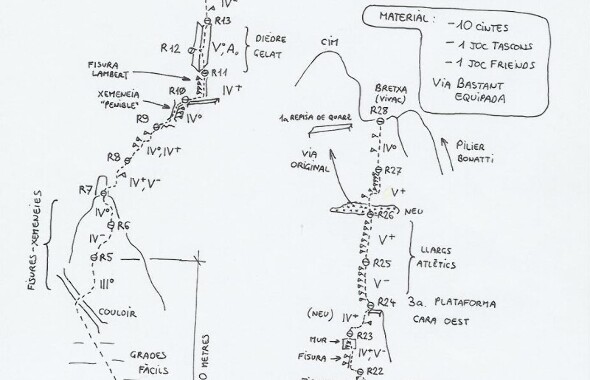 IV-
R13
R12
V°, A₀
DIEDRE
GELAT
FISURA
LAMBERT
R11
XEMENEIA
"PENIBLE"
R10
IV+
R9
IV°
IV°, IV+
R8
IV+, V-
R7
IV°
R6
IV-
R5
FISURES-XEMENEIES
III°
COULOIR
GRADES
FÀCILS
0 METRES
MATERIAL:
-10 CINTES
-1 JOC TASCONS
-1 JOC FRIENDS
VIA BASTANT
EQUIPADA
CIM
BRETXA
(VIVAC)
R28
1a REPISA DE QUARZ
VIA
ORIGINAL
IV°
PILIER
BONATTI
R27
V+
NEU
R26
V+
LLARGS
ATLÈTICS
R25
V-
R24
3a. PLATAFORMA
CARA OEST
(NEU)
IV+
R23
MUR
FISURA
IV+, V-
R22